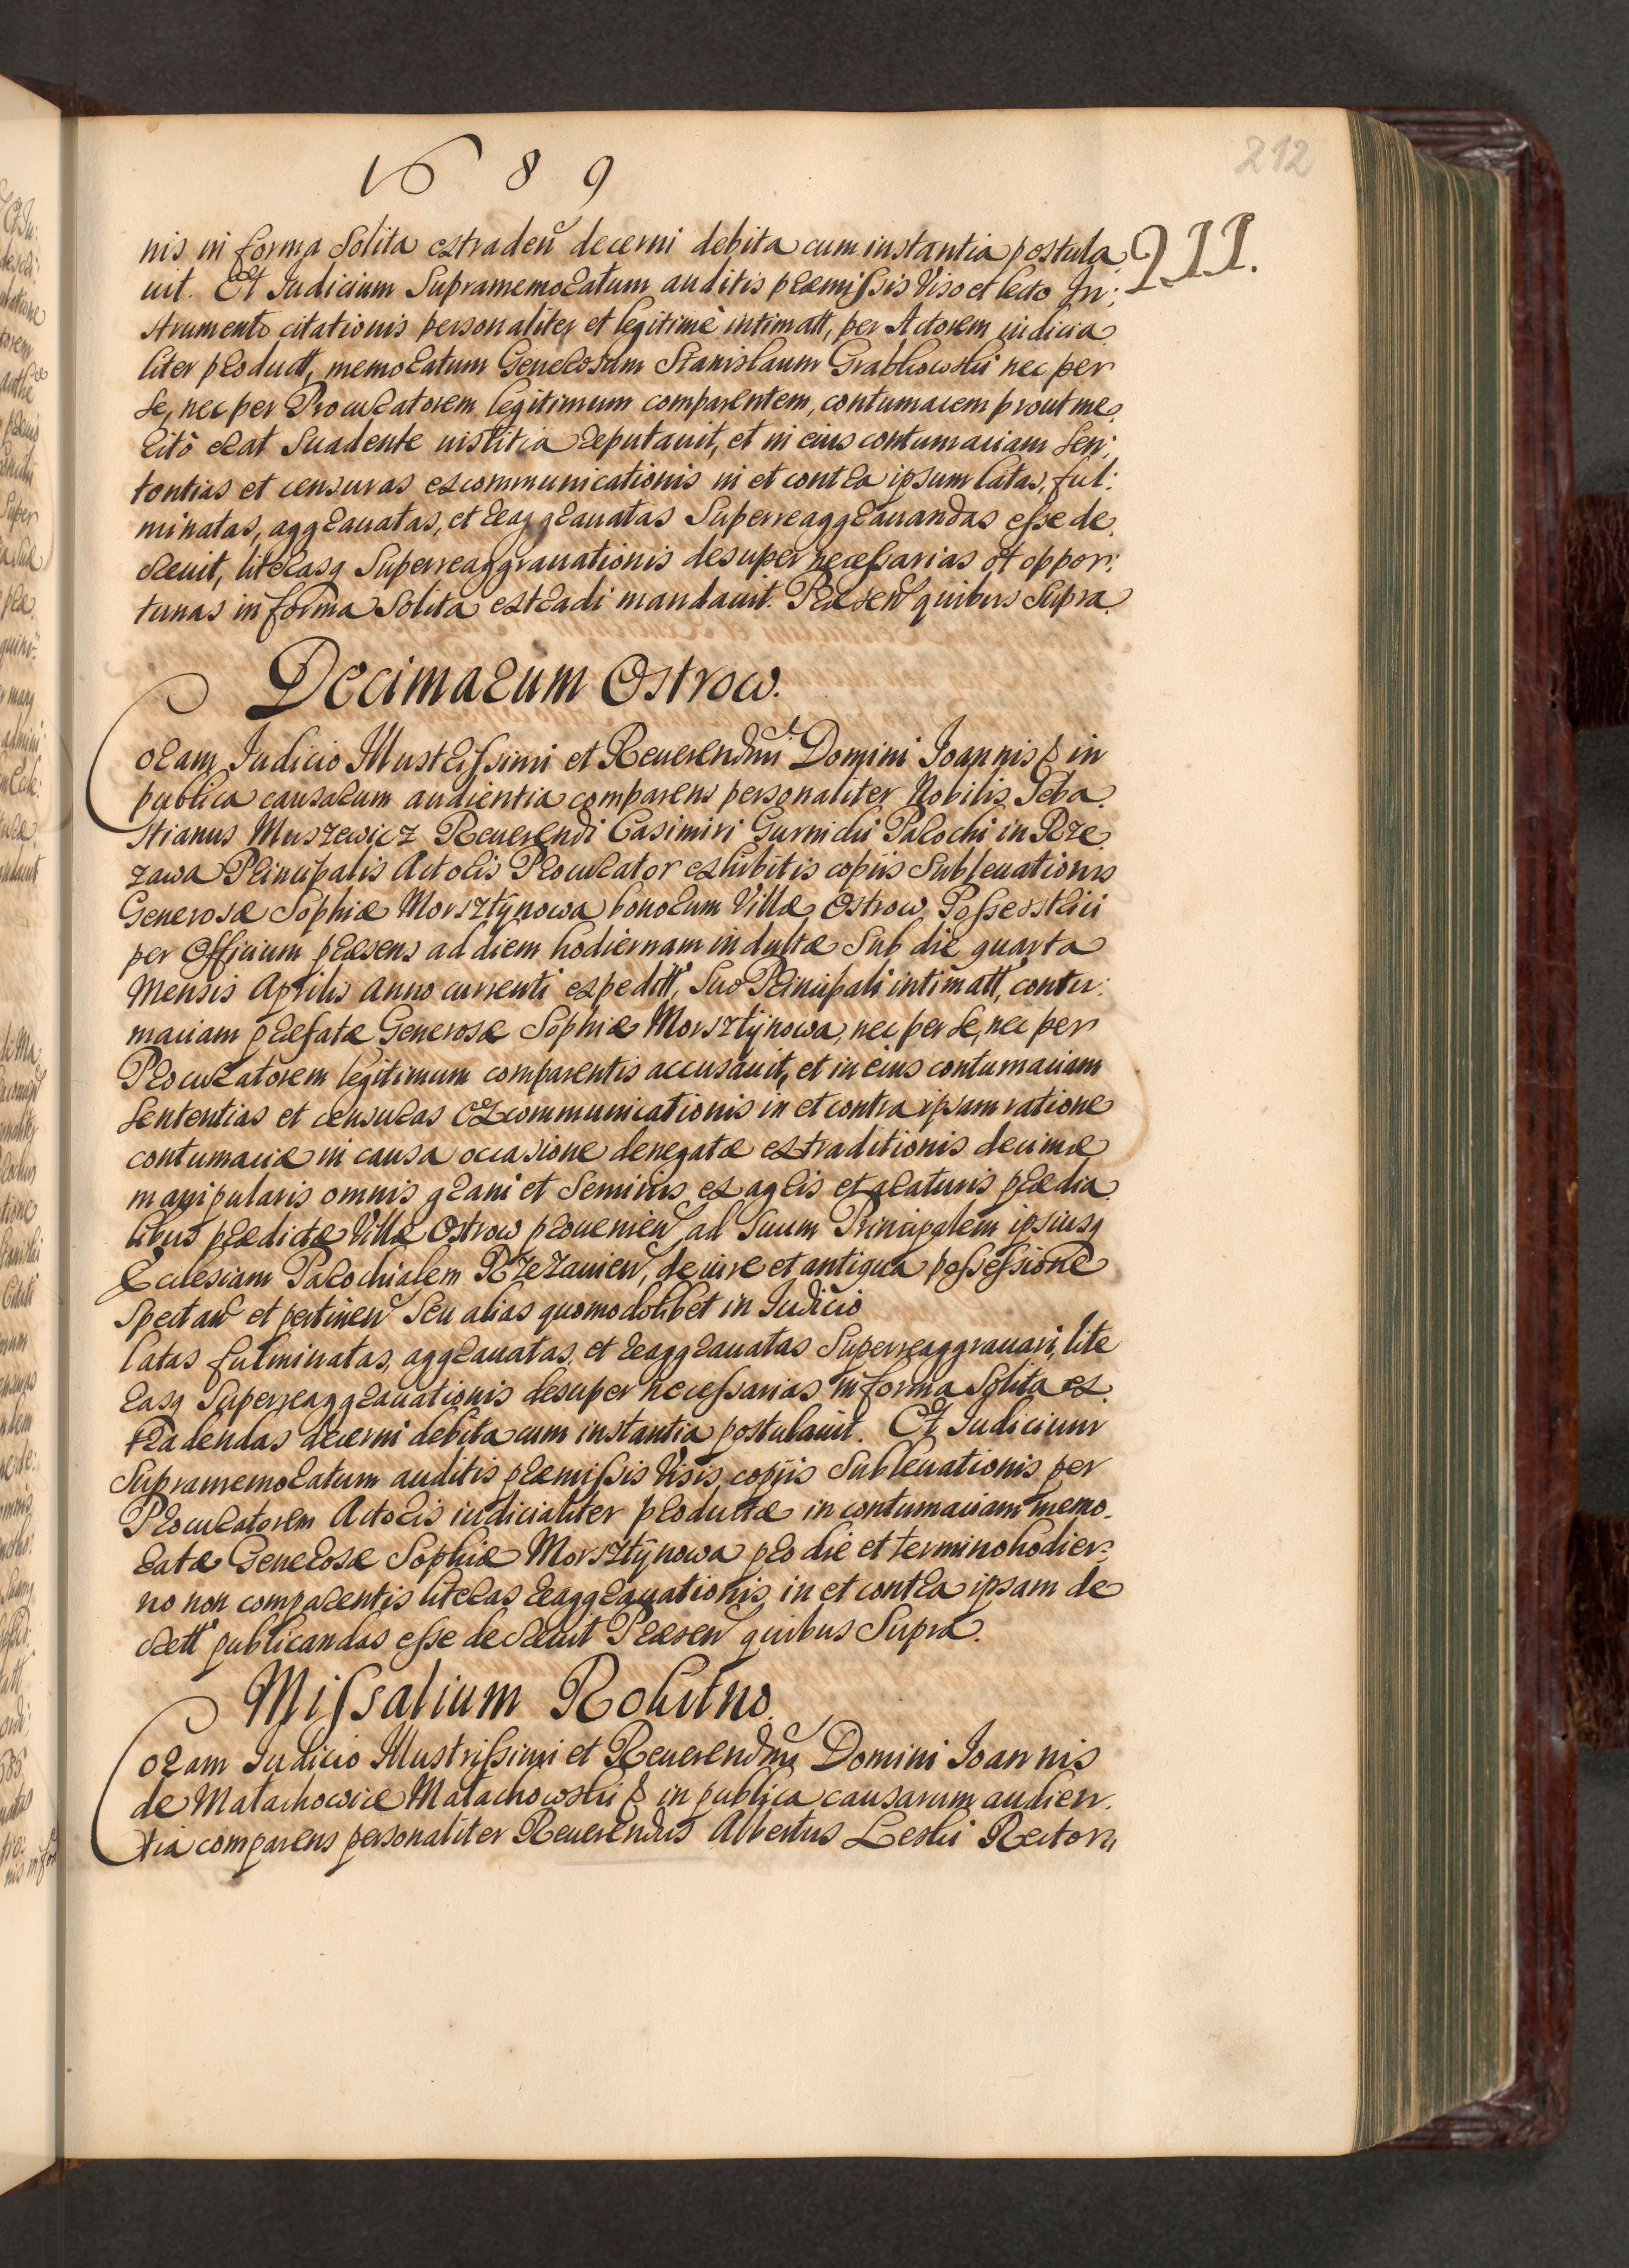 1689
212
211.
nis in forma solita extraden decerni debita cum instantia postula
uit. Et Judicium Supramemoratum auditis præmissis Viso et lecto In:
strumento citationis personaliter et legitime intimatt, per Actorem iudicia
liter productt, memoratum Generosum Stanislaum Grabkowski nec per
se, nec per Procuratorem legitimum comparentem, contumacem prout me
rito erat suadente iustitia reputauit, et in eius contumaciam Sen:
tentias et censuras excommunicationis in et contra ipsum latas, ful:
minatas, aggrauatas, et reaggrauatas Superreaggrauandas esse de
creuit, literasq Superreaggrauationis desuper necessarias et oppor:
tunas in forma solita extradi mandauit. Præsen quibus Supra.
Decimarum Ostrow.
Coram Judicio Illustrissimi et Reuerendmi Domini Joannis & in
publica causarum audientia comparens personaliter Nobilis Seba
stianus Muszewicz Reuerendi Casimiri Gurnicki Parochi in Rze
zawa Principalis Actoris Procurator exhibitis copiis Subleuationis
Generosæ Sophiæ Morsztynowa bonorum Villæ Ostrow Possestrici
per Officium præsens ad diem hodiernam indultæ sub die quarta
Mensis Aprilis Anno currenti expeditt, suo Principali intimatt, contu:
maciam præfatæ Generosæ Sophiæ Morsztynowa, nec per se, nec per
Procuratorem legitimum comparentis accusauit, et in eius contumaciam
sententias et censuras Excommunicationis in et contra ipsam ratione
contumaciæ in causa occasione denegatæ extraditionis decimæ
manipularis omnis grani et seminis ex agris et araturis prædia
libus prædictæ Villæ Ostrow prouenien ad suum Principalem ipsiusq
Ecclesiam Parochialem Rzezauien, de iure et antiqua possessione
spectan et pertinen seu alias quomodolibet in Judicio
latas fulminatas, aggrauatas, et reaggrauatas Superreaggrauari, lite
rasq Superreaggrauationis desuper necessarias in forma solita ex
tradendas decerni debita cum instantia postulauit. Et Judicium
Supramemoratum auditis præmissis Visis copiis Subleuationis per
Procuratorem Actoris iudicialiter productæ in contumaciam memo
ratæ Generosæ Sophiæ Morsztynowa pro die et termino hodier:
no non comparentis literas reaggrauationis in et contra ipsam de
crett publicandas esse decreuit Præsen quibus Supra.
Missalium Rokitno.
Coram Judicio Illustrissimi et Reuerendmi Domini Joannis
de Małachowice Małachowski & in publica causarum audien
tia comparens personaliter Reuerendus Albertus Leski Rector